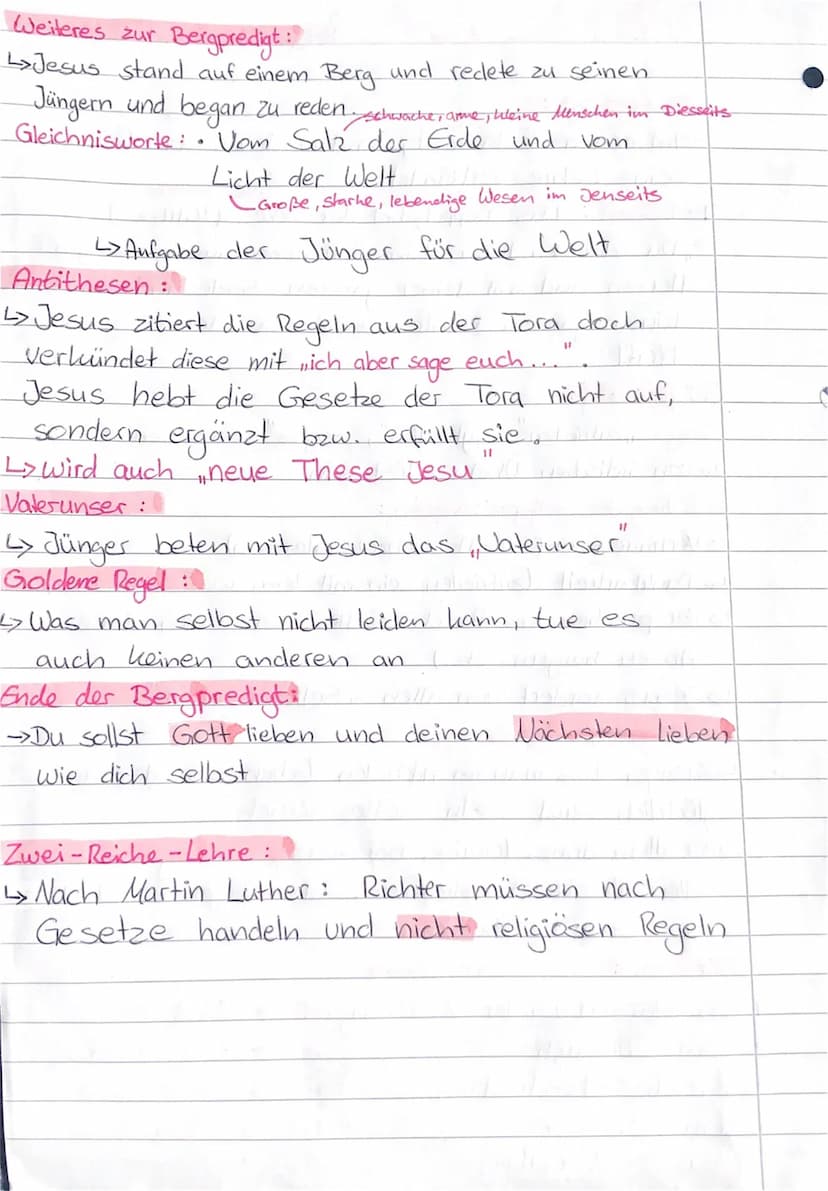 Weiteres zur Bergpredigt:
↳Jesus stand auf einem Berg und redete zu seinen
Jüngern und began zu reden.
schwache, arme, kleine Menschen im Diesseits
Gleichnisworte: • Vom Salz der Erde und vom
Licht der Welt
Große, starke, lebendige Wesen im Jenseits
↳Aufgabe der Jünger für die Welt
Antithesen:
↳Jesus zitiert die Regeln aus der Tora doch
verkündet diese mit „ich aber sage euch...".
Jesus hebt die Gesetze der Tora nicht auf,
sondern ergänzt bzw. erfüllt sie.
↳wird auch „neue These Jesu"
Vaterunser:
↳ Jünger beten mit Jesus das „Vaterunser"
Goldene Regel:
↳Was man selbst nicht leiden kann, tue es
auch keinen anderen an
Ende der Bergpredigt:
→Du sollst Gott lieben und deinen Nächsten lieben
wie dich selbst
Zwei-Reiche-Lehre:
↳Nach Martin Luther: Richter müssen nach
Gesetze handeln und nicht religiösen Regeln